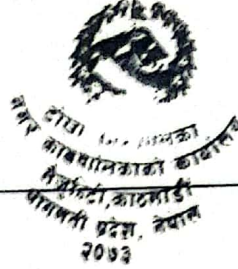 टोखा
नगर कार्यपालिकाको कार्यालय
काठमाडौं
बागमती प्रदेश, नेपाल
२०७३